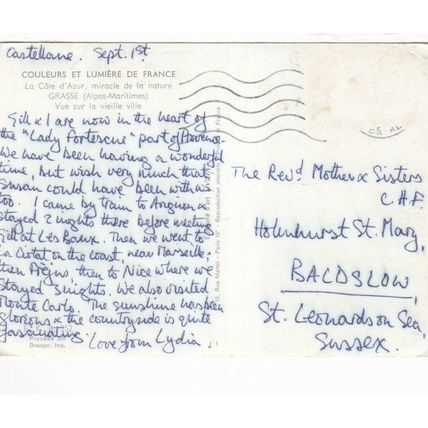 Castellane. Sept. 1st
COULEURS ET LUMIÈRE DE FRANCE
La Côte d'Azur, miracle de la nature
GRASSE (Alpes-Maritimes)
Vue sur la vieille ville
Gill & I are now in the heart of
the "Lady Fortescue" part of Provence
We have been having a wonderful
time, but wish very much that
Susan could have been with us
too. I came by train to Avignon &
stayed 2 nights there before meeting
Gill at Les Baux. Then we went to
La Ciotat on the coast, near Marseille,
then Fréjus, then to Nice where we
stayed nights. We also visited
Monte Carlo. The sunshine has been
glorious & the countryside is quite
fascinating. Love from Lydia
Draeger, Imp.
The Revd. Mother & Sisters
C.H.F.
Holmhurst St. Mary,
BALDSLOW,
St. Leonards on Sea,
Sussex.